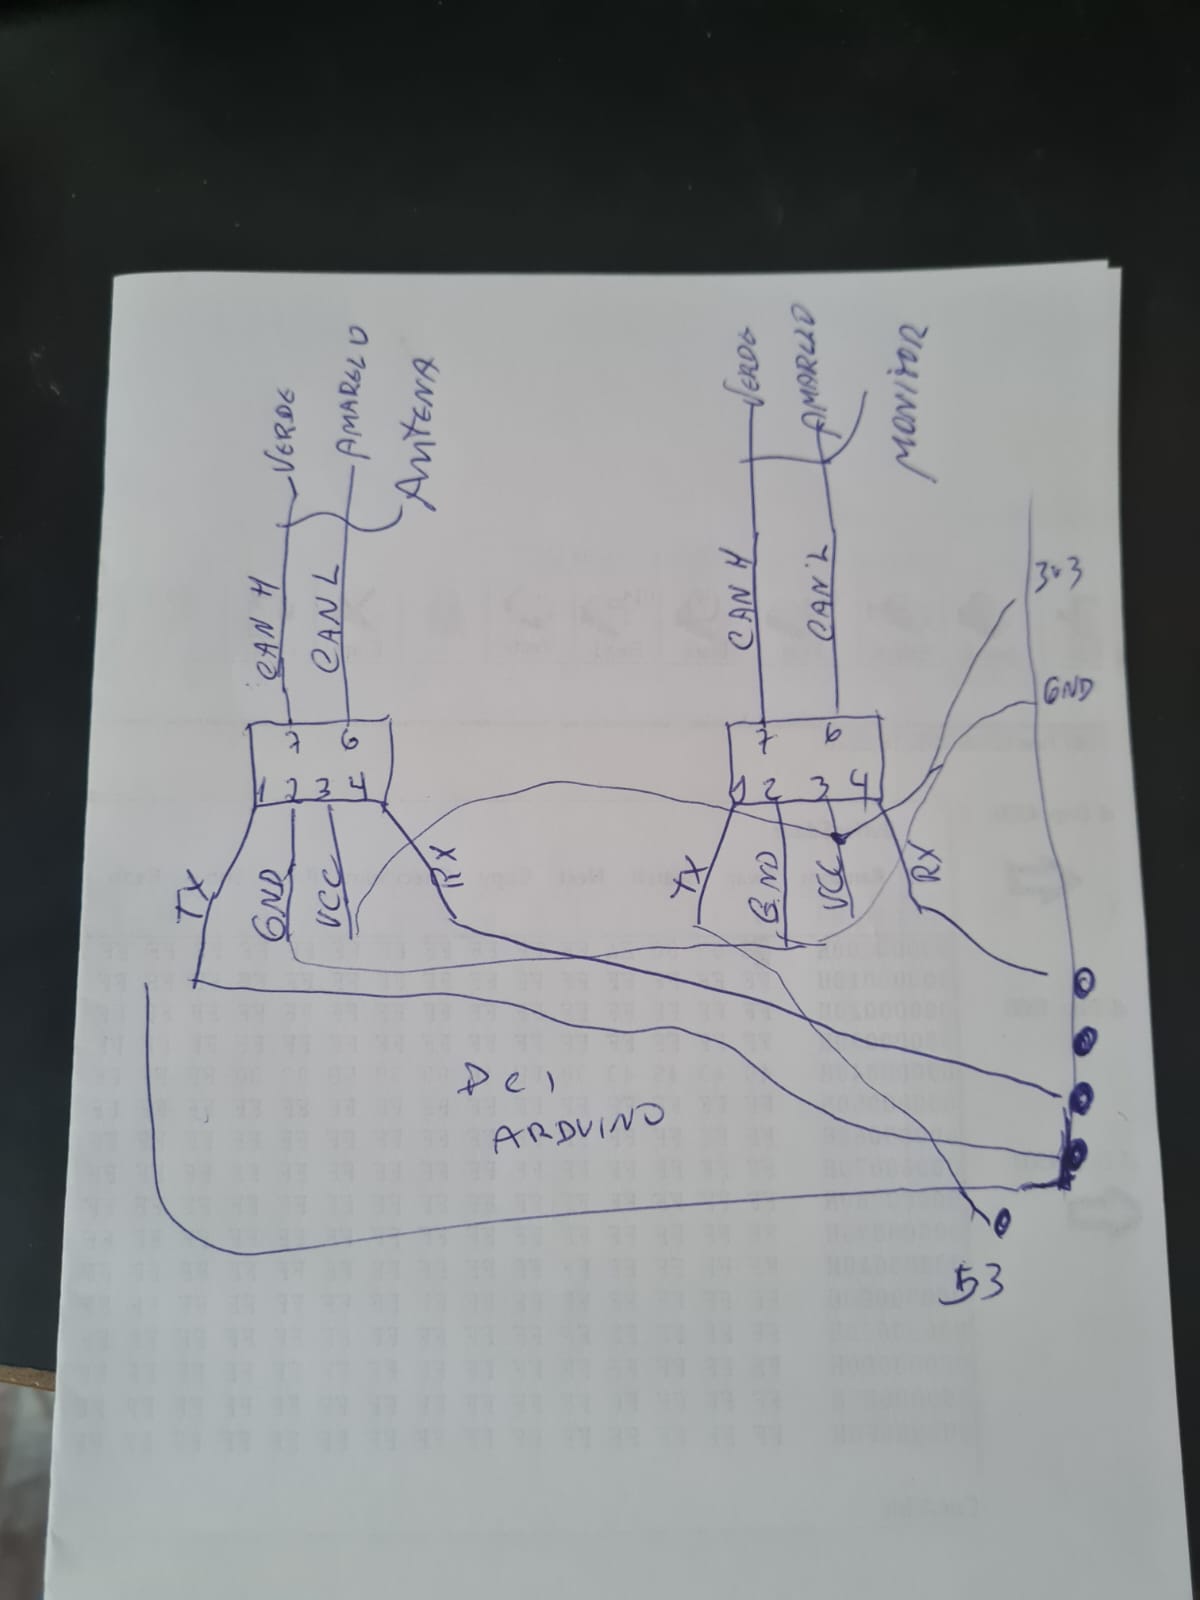 VERDE
AMARELO
ANTENA
CAN H
CAN L
7 6
1 2 3 4
TX
GND
VCC
RX
VERDE
AMARELO
MONITOR
CAN H
CAN L
7 6
1 2 3 4
TX
GND
VCC
RX
3v3
GND
ARDUINO
53